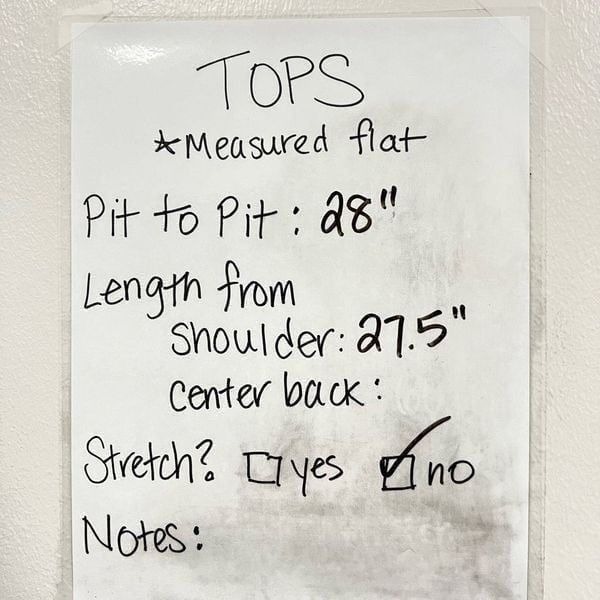 TOPS
*Measured flat
Pit to Pit: 28"
Length from
Shoulder: 27.5"
Center back:
Stretch? ☐ yes ☑ no
Notes: